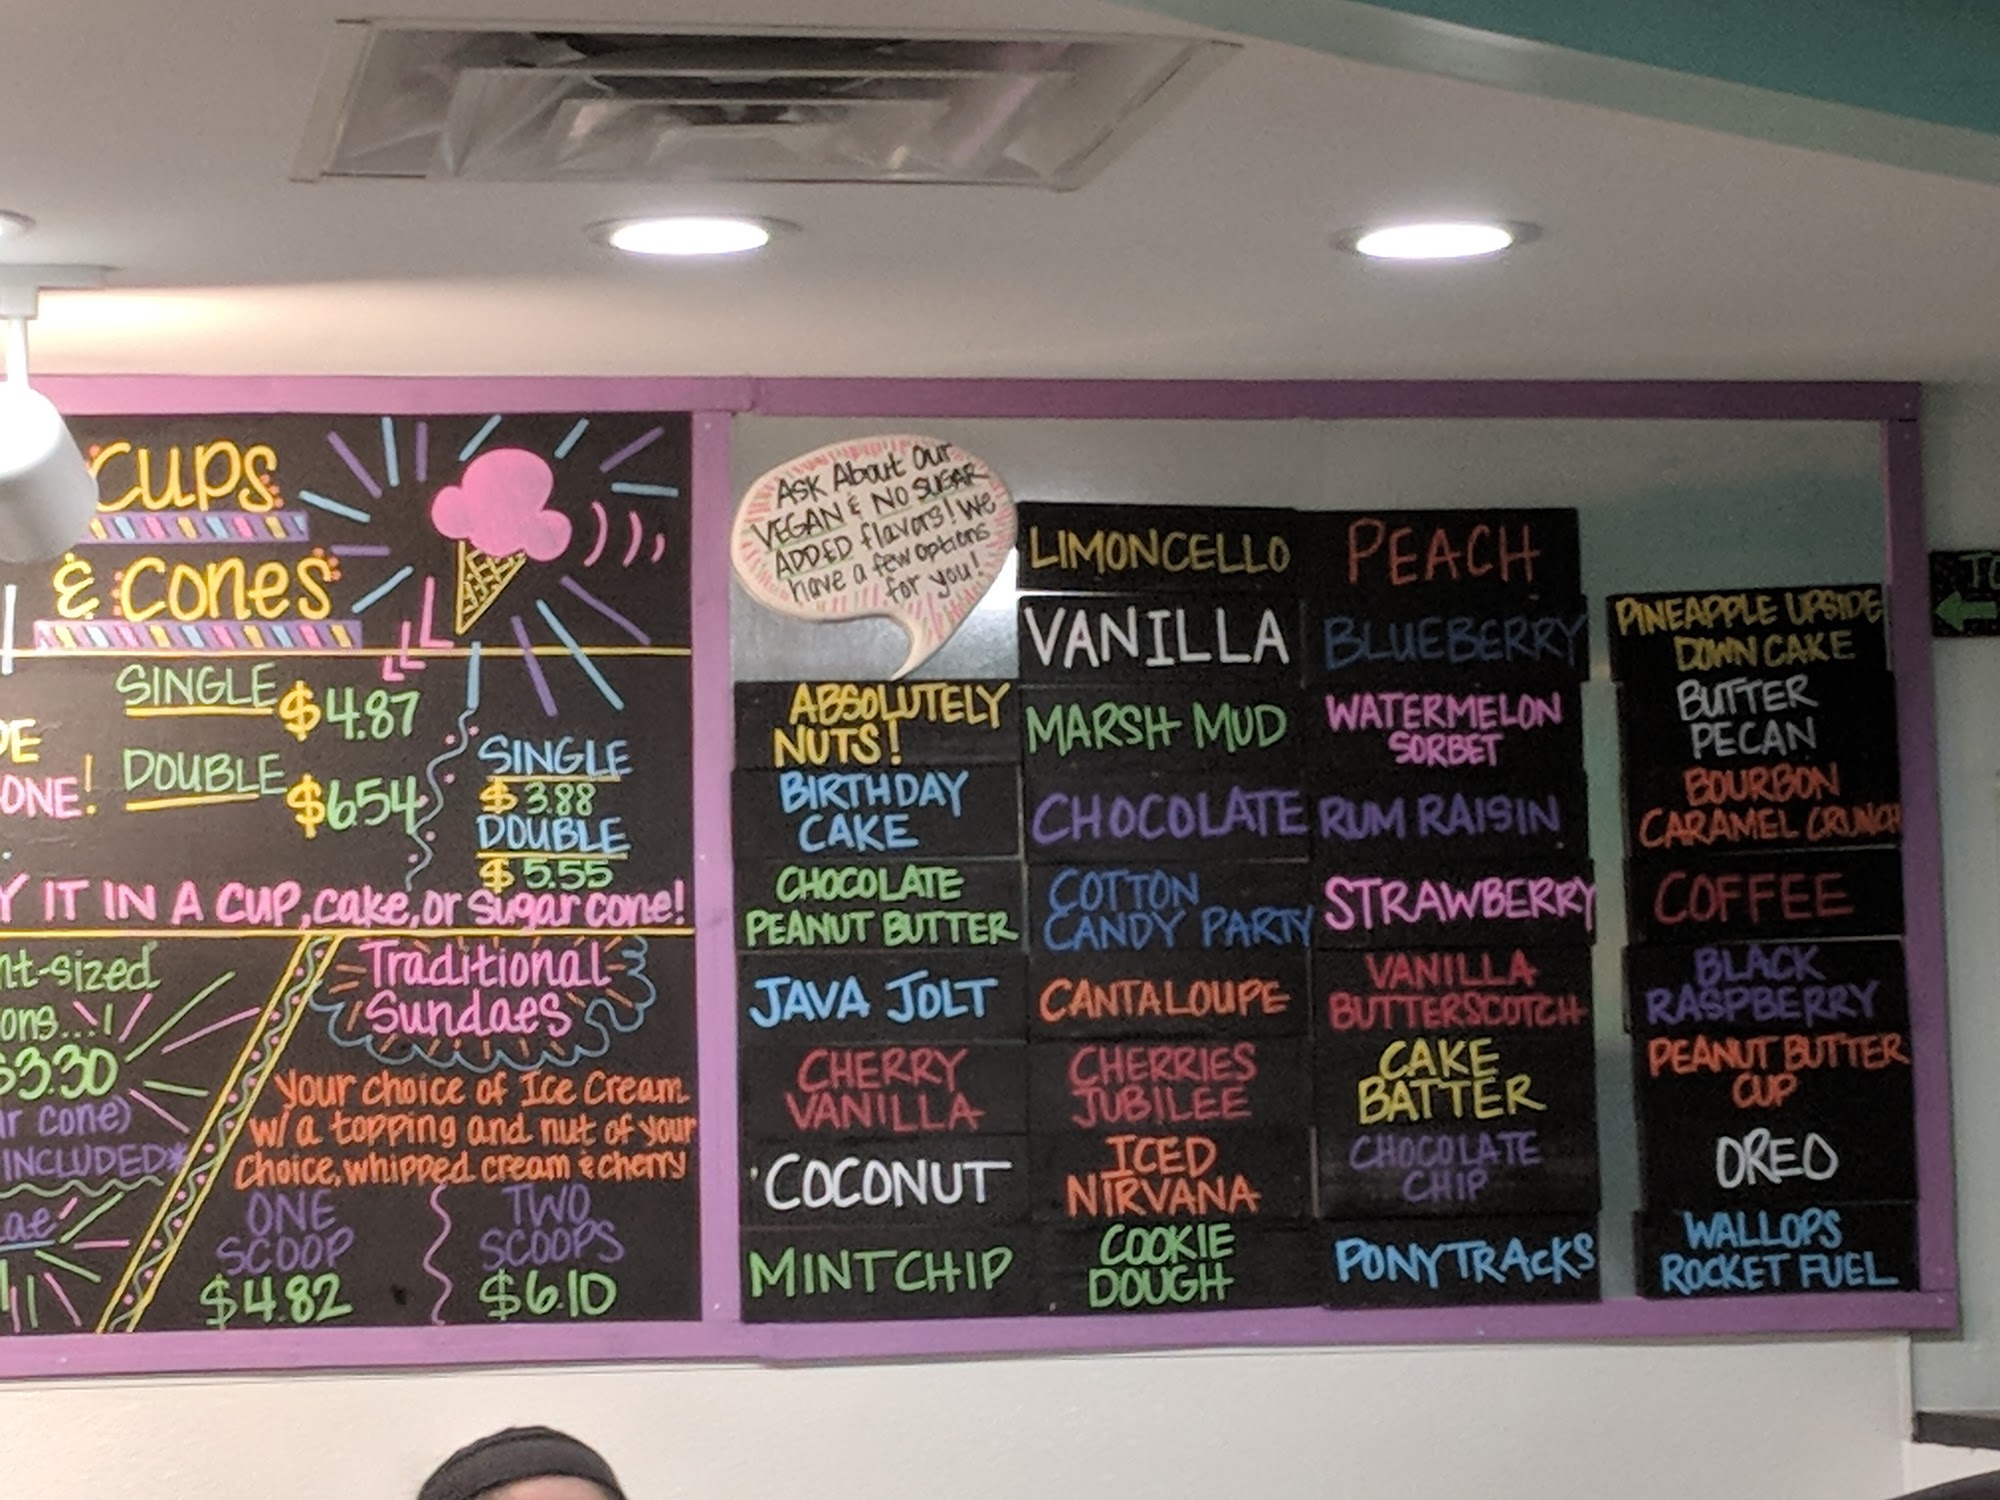 CUPS
& CONES
SINGLE $4.87
DOUBLE $6.54
ONE!
SINGLE
$3.88
DOUBLE
$5.55
IT IN A CUP, cake, or sugar cone!
$3.30
cone)
INCLUDED*
Traditional
Sundaes
Your choice of Ice Cream
w/ a topping and nut of your
Choice, whipped cream & cherry
ONE
SCOOP
$4.82
TWO
SCOOPS
$6.10
ASK About Our
VEGAN & NO SUGAR
ADDED flavors! We
have a few options
for you!
ABSOLUTELY
NUTS!
BIRTHDAY
CAKE
CHOCOLATE
PEANUT BUTTER
JAVA JOLT
CHERRY
VANILLA
COCONUT
MINT CHIP
LIMONCELLO
VANILLA
MARSH MUD
CHOCOLATE
COTTON
CANDY PARTY
CANTALOUPE
CHERRIES
JUBILEE
ICED
NIRVANA
COOKIE
DOUGH
PEACH
BLUEBERRY
WATERMELON
SORBET
RUM RAISIN
STRAWBERRY
VANILLA
BUTTERSCOTCH
CAKE
BATTER
CHOCOLATE
CHIP
PONY TRACKS
PINEAPPLE UPSIDE
DOWN CAKE
BUTTER
PECAN
BOURBON
CARAMEL CRUNCH
COFFEE
BLACK
RASPBERRY
PEANUT BUTTER
CUP
OREO
WALLOPS
ROCKET FUEL